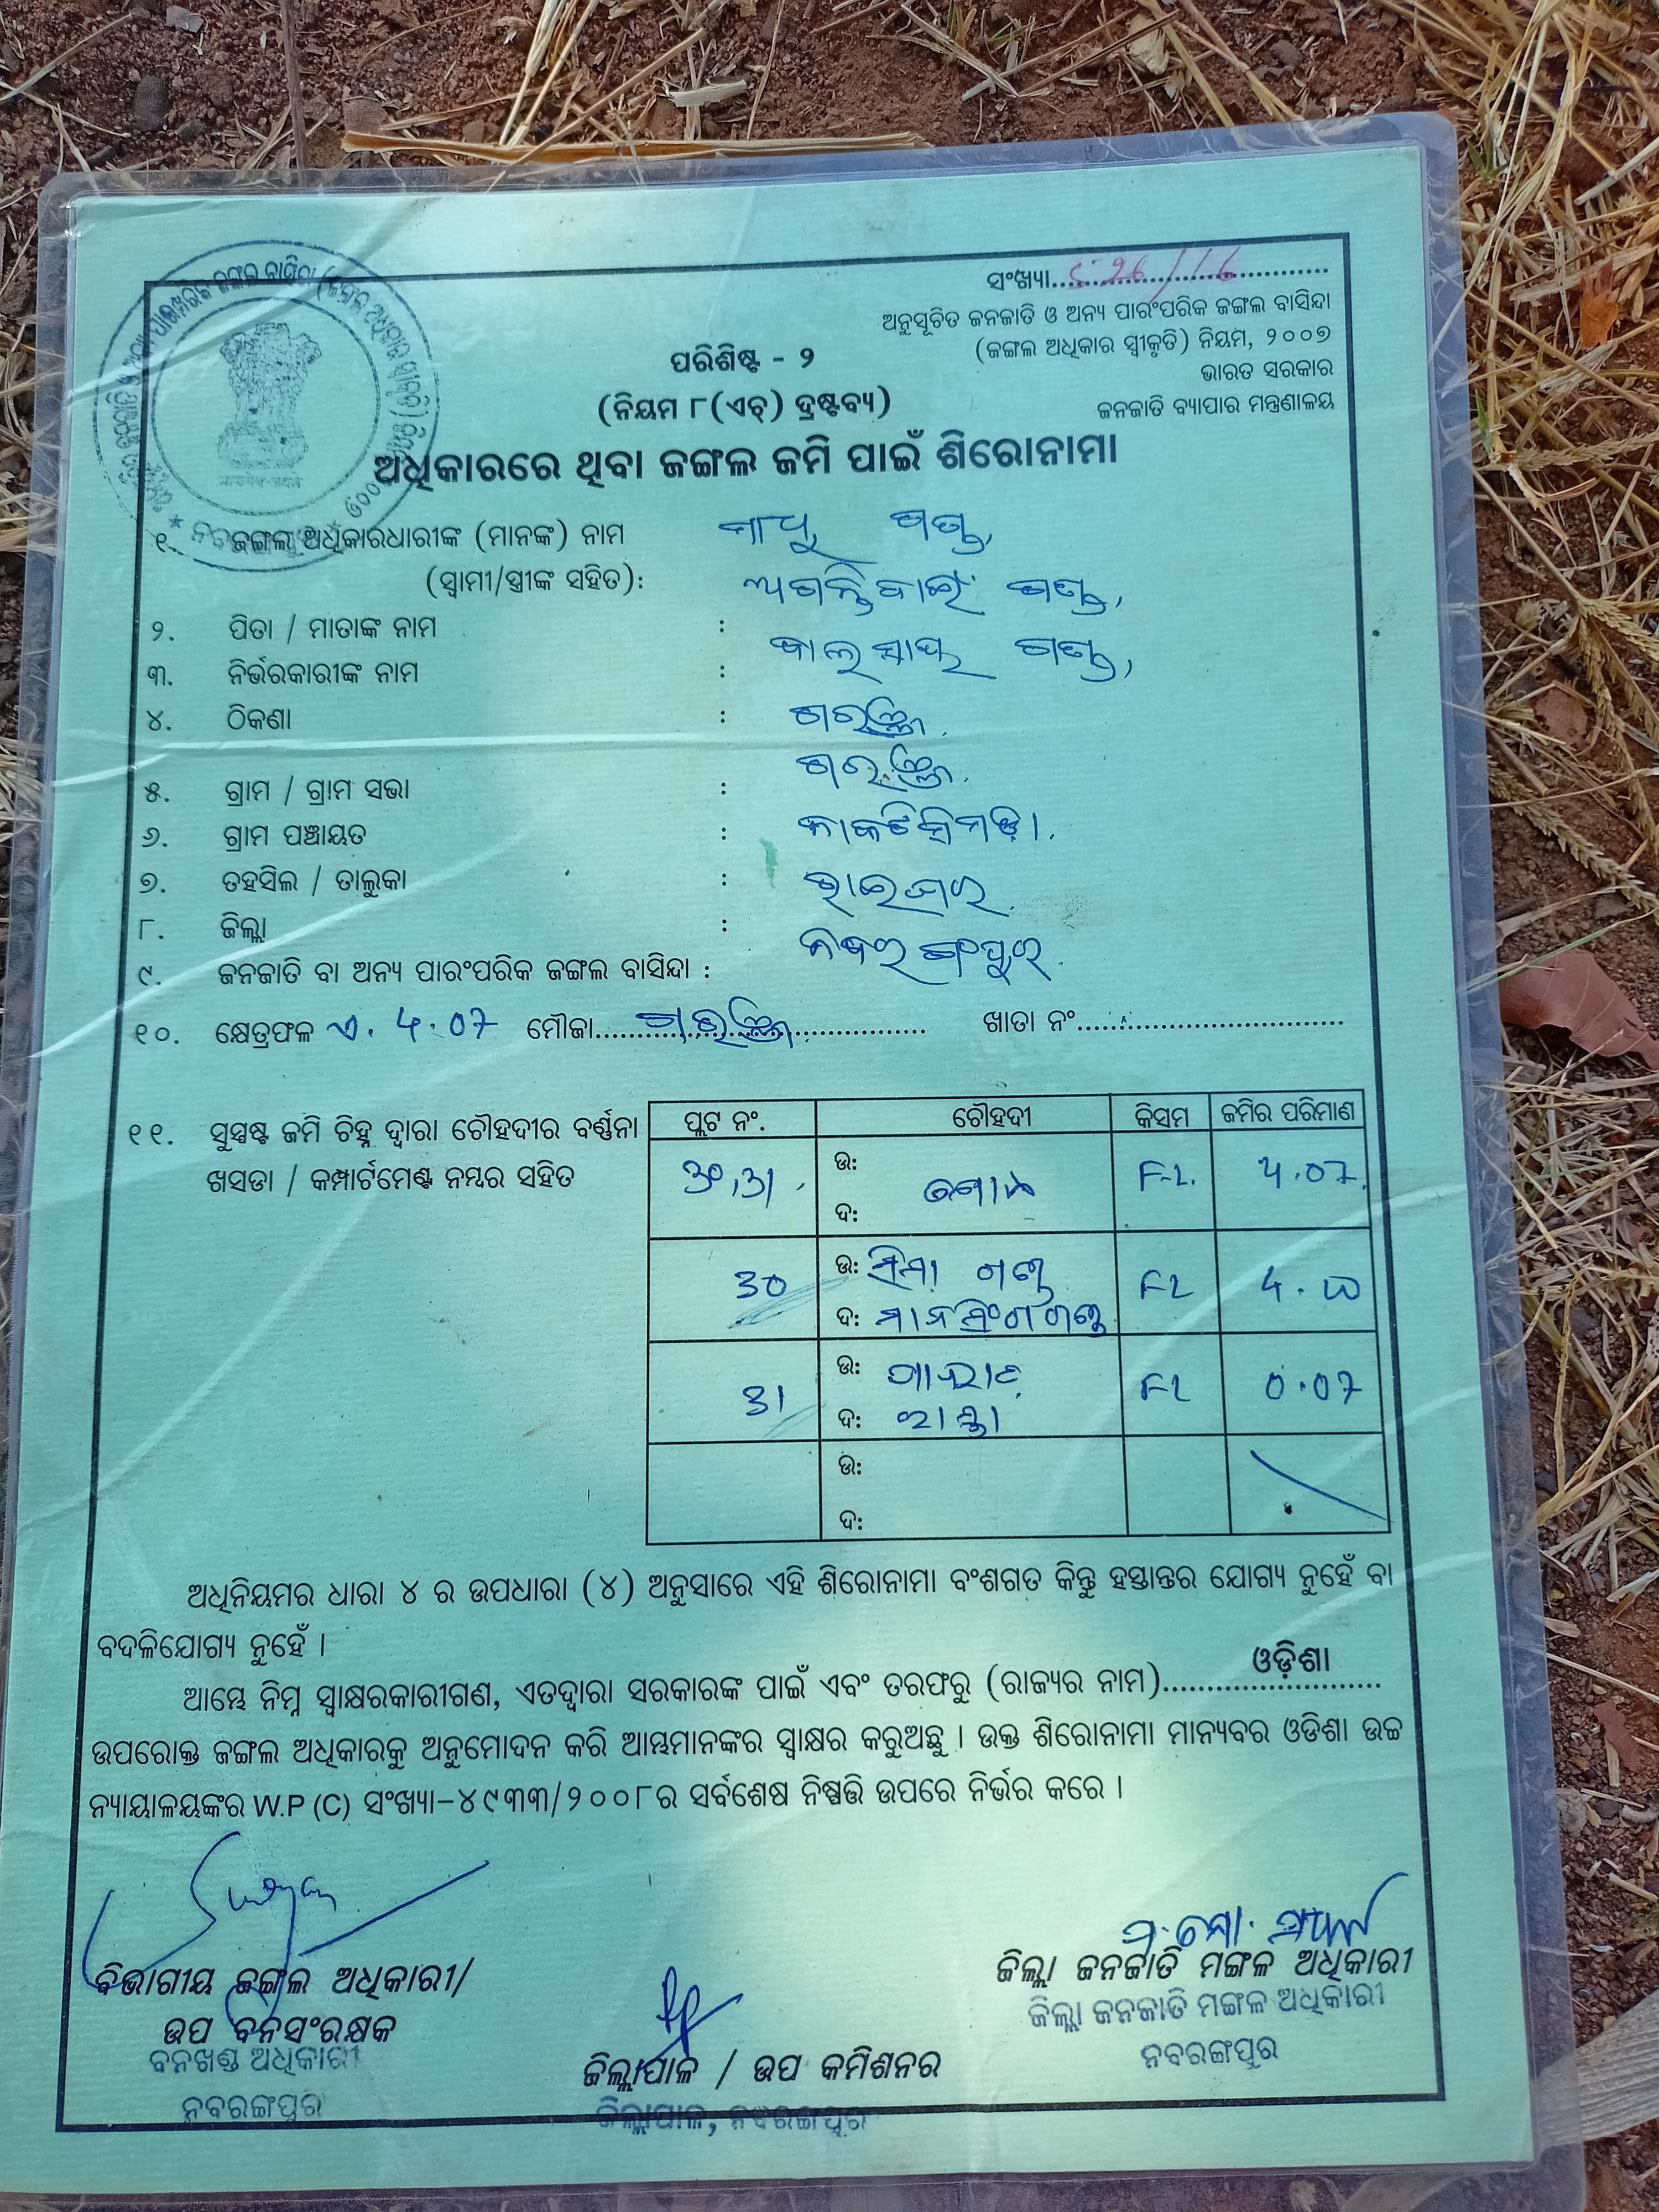 ସଂଖ୍ୟା..............................
ଅନୁସୂଚିତ ଜନଜାତି ଓ ଅନ୍ୟ ପାରଂପରିକ ଜଙ୍ଗଲ ବାସିନ୍ଦା
(ଜଙ୍ଗଲ ଅଧିକାର ସ୍ୱୀକୃତି) ନିୟମ, ୨୦୦୭
ଭାରତ ସରକାର
ଜନଜାତି ବ୍ୟାପାର ମନ୍ତ୍ରଣାଳୟ
ପରିଶିଷ୍ଟ - ୨
(ନିୟମ ୮(ଏଚ୍) ଦ୍ରଷ୍ଟବ୍ୟ)
ଅଧିକାରରେ ଥିବା ଜଙ୍ଗଲ ଜମି ପାଇଁ ଶିରୋନାମା
୧. ଜଙ୍ଗଲ ଅଧିକାରଧାରୀଙ୍କ (ମାନଙ୍କ) ନାମ ଗଣ୍ଡ,
(ସ୍ୱାମୀ/ସ୍ତ୍ରୀଙ୍କ ସହିତ): ଗଣ୍ଡ,
୨. ପିତା / ମାତାଙ୍କ ନାମ : ଗଣ୍ଡ,
୩. ନିର୍ଭରକାରୀଙ୍କ ନାମ :
୪. ଠିକଣା :
୫. ଗ୍ରାମ / ଗ୍ରାମ ସଭା :
୬. ଗ୍ରାମ ପଞ୍ଚାୟତ :
୭. ତହସିଲ / ତାଲୁକା : ରାଇଘର
୮. ଜିଲ୍ଲା : ନବରଙ୍ଗପୁର
୯. ଜନଜାତି ବା ଅନ୍ୟ ପାରଂପରିକ ଜଙ୍ଗଲ ବାସିନ୍ଦା :
୧୦. କ୍ଷେତ୍ରଫଳ ଏ. 4.07 ମୌଜା.............................. ଖାତା ନଂ..............................
୧୧. ସୁସ୍ପଷ୍ଟ ଜମି ଚିହ୍ନ ଦ୍ୱାରା ଚୌହଦୀର ବର୍ଣ୍ଣନା
ଖସଡା / କମ୍ପାର୍ଟମେଣ୍ଟ ନମ୍ବର ସହିତ
ପ୍ଲଟ ନଂ. ଚୌହଦୀ କିସମ ଜମିର ପରିମାଣ
30,31 ଉ: ଦ: F.L. 4.07
30 ଉ: ଗଣ୍ଡ FL
ଦ:
31 ଉ: FL 0.07
ଦ: ରାସ୍ତା
ଉ:
ଦ:
ଅଧିନିୟମର ଧାରା ୪ ର ଉପଧାରା (୪) ଅନୁସାରେ ଏହି ଶିରୋନାମା ବଂଶଗତ କିନ୍ତୁ ହସ୍ତାନ୍ତର ଯୋଗ୍ୟ ନୁହେଁ ବା
ବଦଳିଯୋଗ୍ୟ ନୁହେଁ ।
ଆମ୍ଭେ ନିମ୍ନ ସ୍ୱାକ୍ଷରକାରୀଗଣ, ଏତଦ୍ୱାରା ସରକାରଙ୍କ ପାଇଁ ଏବଂ ତରଫରୁ (ରାଜ୍ୟର ନାମ)......ଓଡ଼ିଶା......
ଉପରୋକ୍ତ ଜଙ୍ଗଲ ଅଧିକାରକୁ ଅନୁମୋଦନ କରି ଆମ୍ଭମାନଙ୍କର ସ୍ୱାକ୍ଷର କରୁଅଛୁ । ଉକ୍ତ ଶିରୋନାମା ମାନ୍ୟବର ଓଡିଶା ଉଚ୍ଚ
ନ୍ୟାୟାଳୟଙ୍କର W.P (C) ସଂଖ୍ୟା-୪୯୩୩/୨୦୦୮ର ସର୍ବଶେଷ ନିଷ୍ପତ୍ତି ଉପରେ ନିର୍ଭର କରେ ।
ବିଭାଗୀୟ ଜଙ୍ଗଲ ଅଧିକାରୀ/
ଉପ ବନସଂରକ୍ଷକ
ବନଖଣ୍ଡ ଅଧିକାରୀ
ନବରଙ୍ଗପୁର
ଜିଲ୍ଲାପାଳ / ଉପ କମିଶନର
ଜିଲ୍ଲାପାଳ, ନବରଙ୍ଗପୁର
ଜିଲ୍ଲା ଜନଜାତି ମଙ୍ଗଳ ଅଧିକାରୀ
ଜିଲ୍ଲା ଜନଜାତି ମଙ୍ଗଳ ଅଧିକାରୀ
ନବରଙ୍ଗପୁର